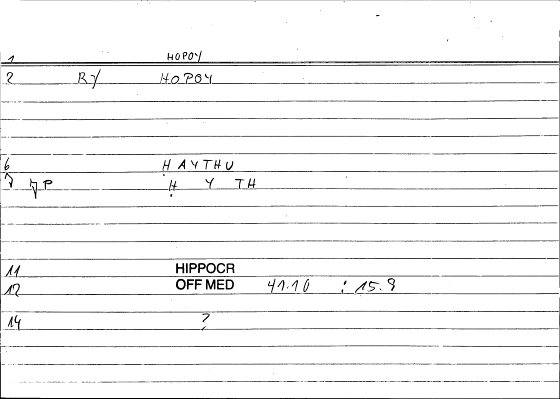 1 HOPOY
2 RY HOPOY
6 HAYTHU
7 H Y TH
11 HIPPOCR
12 OFF MED 41.10 : 15.9
14 ?